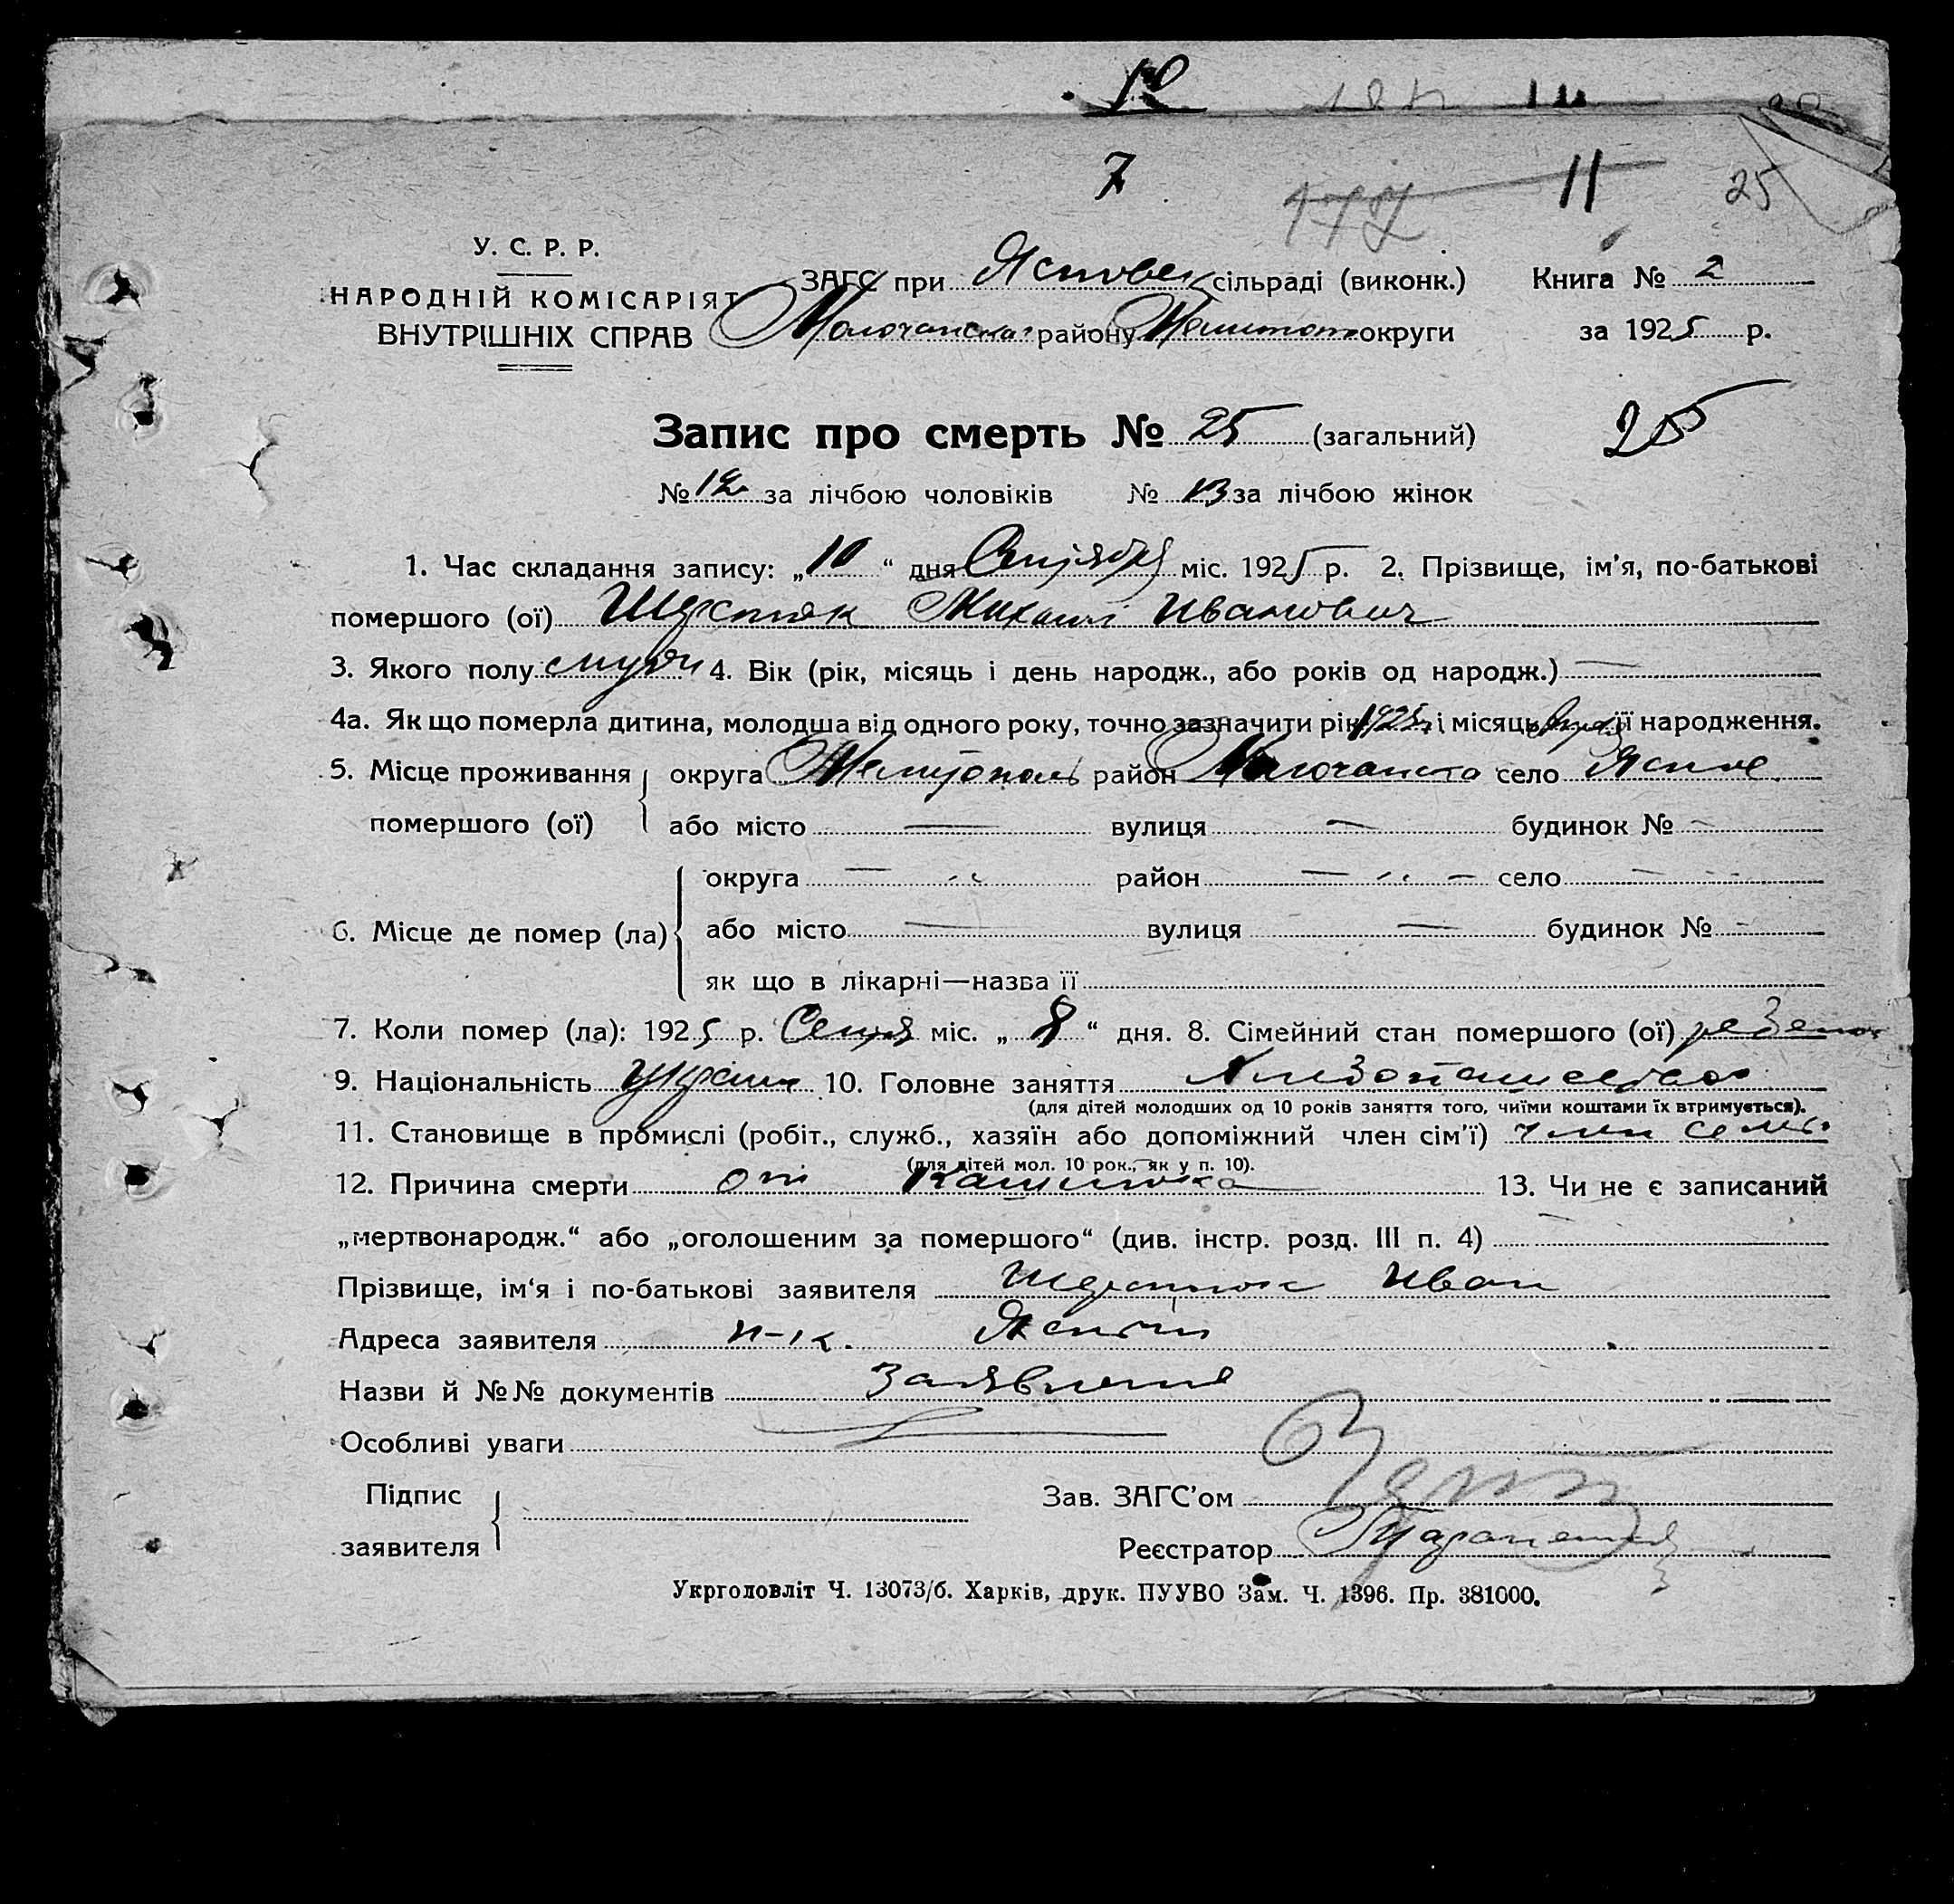 10
7
177 11 25
У. С. Р. Р.
НАРОДНІЙ КОМІСАРІЯТ
ВНУТРІШНІХ СПРАВ
ЗАГС при сільраді (виконк.) Книга № 2
района округи за 1925 р.
Запис про смерть № 25 (загальний) 25
№ 12 за лічбою чоловіків № 13 за лічбою жінок
1. Час складання запису: „10“ дня Сентября міс. 1925 р. 2. Прізвище, ім’я, по-батькові
помершого (ої) Шерстюк Михаил Иванович
3. Якого полу 4. Вік (рік, місяць і день народж., або років од народж.) —
4а. Як що померла дитина, молодша від одного року, точно зазначити рік 1925 і місяць її народження.
5. Місце проживання округа Мелитополь район Молочанск село
помершого (ої) або місто — вулиця — будинок № —
округа — район — село —
6. Місце де помер (ла) або місто — вулиця — будинок № -
як що в лікарні—назва її
7. Коли помер (ла): 1925 р. Сентя міс. „8“ дня. 8. Сімейний стан помершого (ої)
9. Національність Украин 10. Головне заняття Хлебопашество
(для дітей молодших од 10 років заняття того, чиїми коштами їх втримується).
11. Становище в промислі (робіт., служб., хазяїн або допоміжний член сім’ї) член семьи
(для дітей мол. 10 рок., як у п. 10).
12. Причина смерти от 13. Чи не є записаний
„мертвонародж.“ або „оголошеним за помершого“ (див. інстр. розд. III п. 4) —
Прізвище, ім‘я і по-батькові заявителя Шерстюк Иван
Адреса заявителя
Назви й №№ документів Заявление
Особливі уваги
Підпис
заявителя
Зав. ЗАГС’ом
Реєстратор
Укрголовліт Ч. 13073/б. Харків, друк. ПУУВО Зам. Ч. 1396. Пр. 381000.